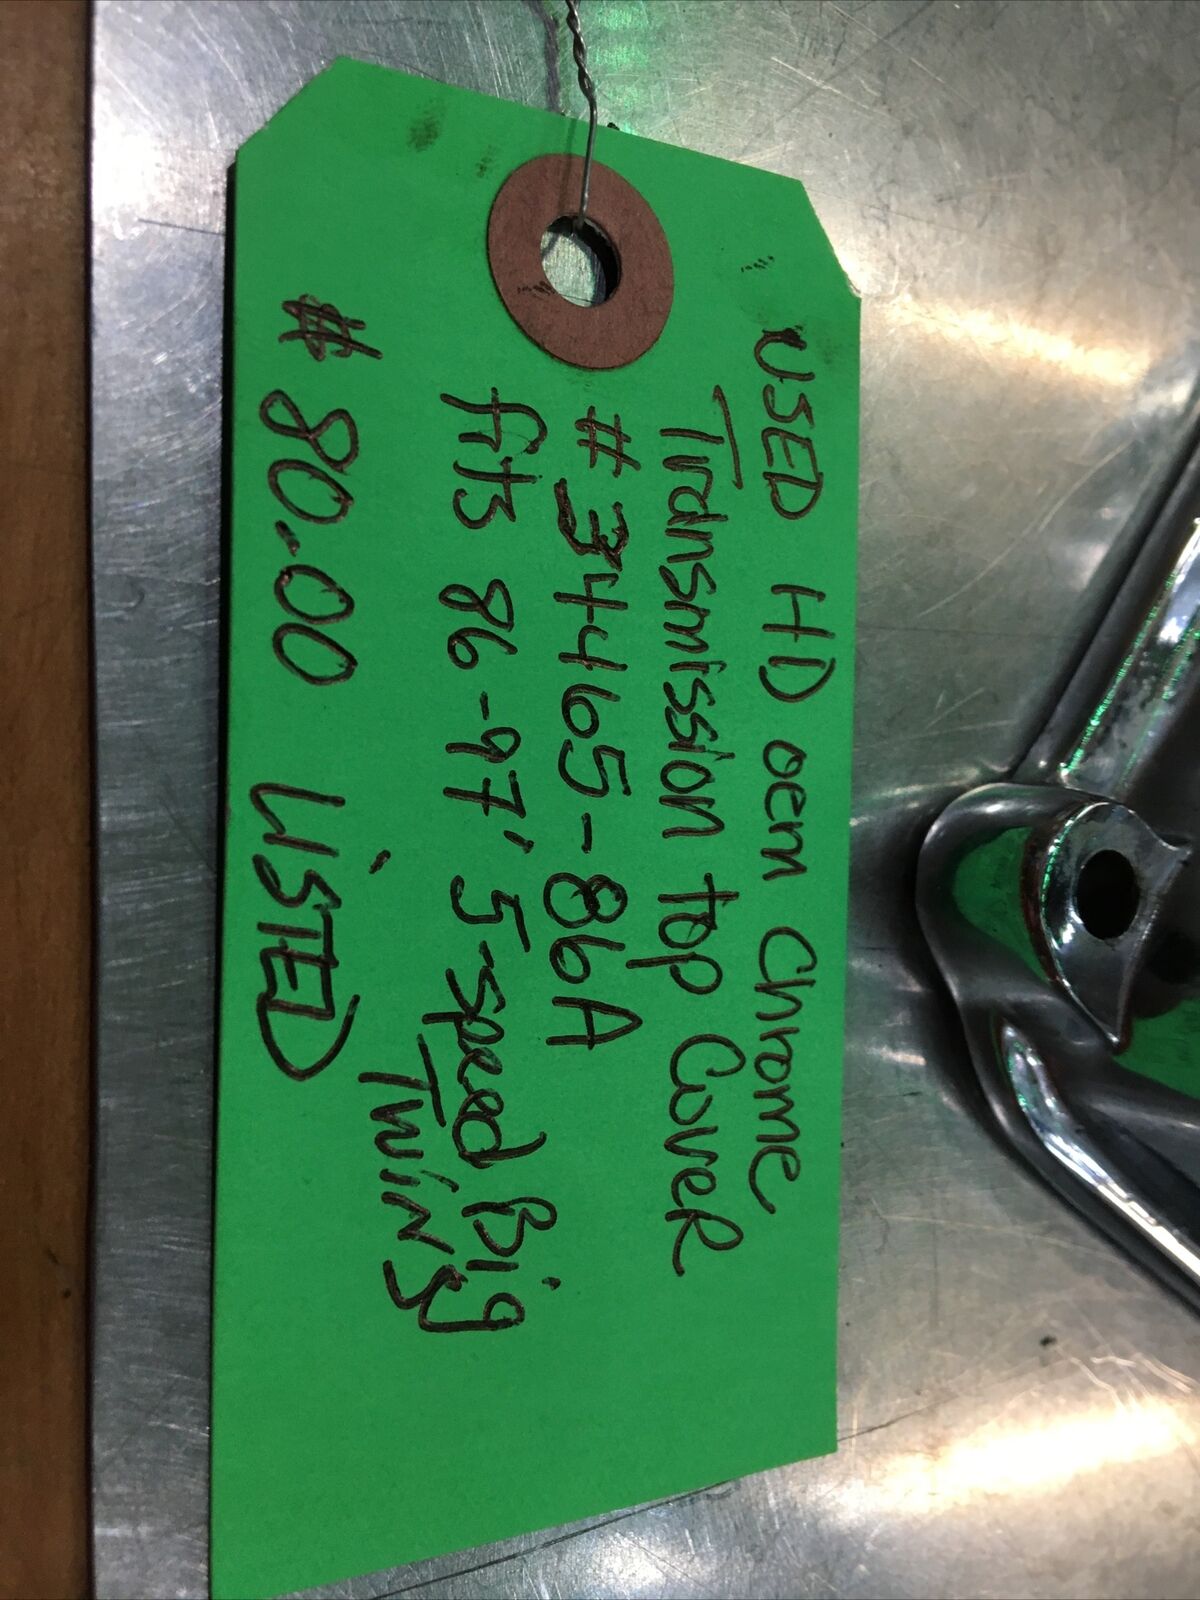 USED HD oem Chrome
Transmission top Cover
# 34465-86A
fits 86-97' 5-speed Big
Twins
# 80.00 LiSTED